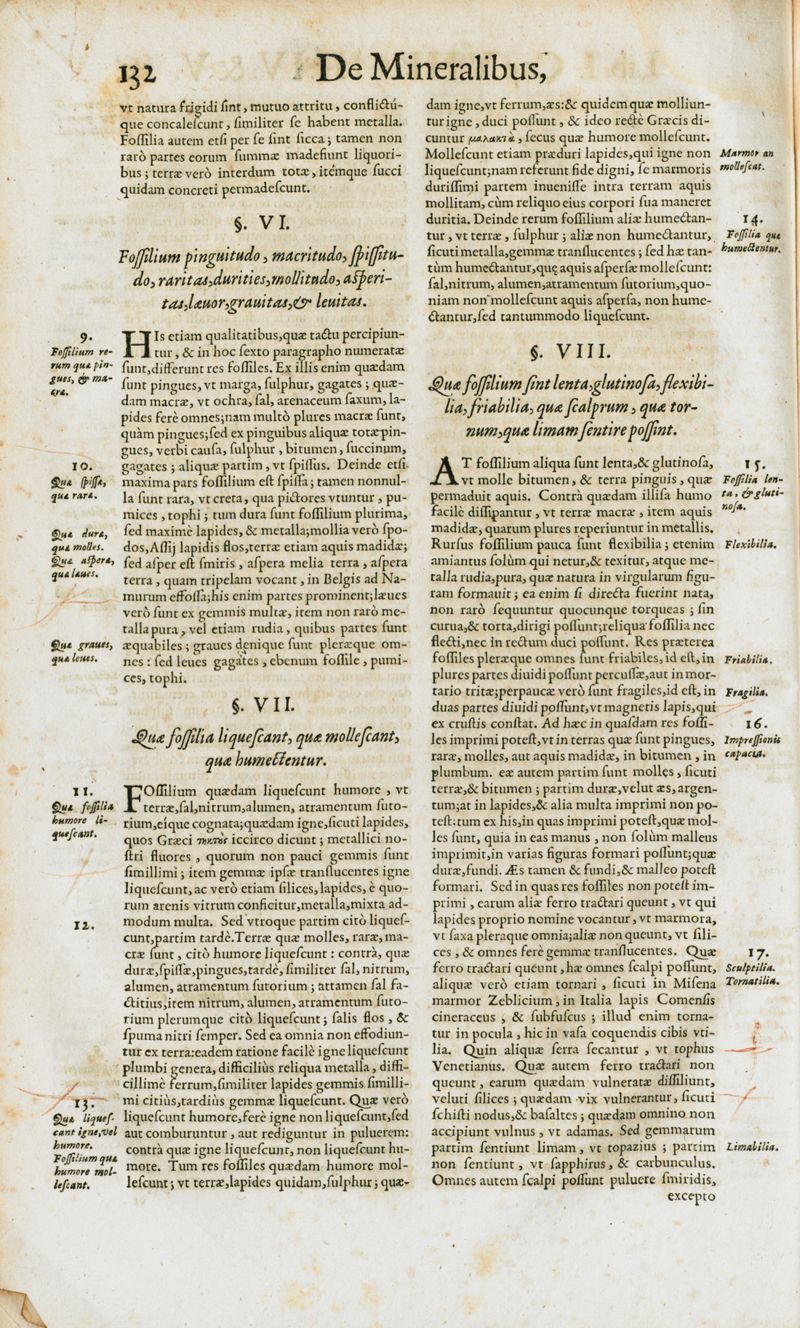 132
De Mineralibus,
vt natura frigidi ſint, mutuo attritu, conflictú-
que concaleſcunt, ſimiliter ſe habent metalla.
Foſſilia autem etſi per ſe ſint ſicca; tamen non
rarò partes eorum ſummæ madefiunt liquori-
bus; terræ verò interdum totæ, itémque ſucci
quidam concreti permadeſcunt.
§. VI.
Foſſilium pinguitudo, macritudo, ſpiſſitu-
do, raritas, durities, mollitudo, aſperi-
tas, læuor, grauitas, & leuitas.
9.
Foſſilium re-
rum quæ pin-
gues, & ma-
cræ.
HIs etiam qualitatibus, quæ tactu percipiun-
tur, & in hoc ſexto paragrapho numeratæ
ſunt, differunt res foſſiles. Ex illis enim quædam
ſunt pingues, vt marga, ſulphur, gagates; quæ-
dam macræ, vt ochra, ſal, arenaceum ſaxum, la-
pides ferè omnes; nam multò plures macræ ſunt,
quàm pingues; ſed ex pinguibus aliquæ totæ pin-
gues, verbi cauſa, ſulphur, bitumen, ſuccinum,
10.
Quæ ſpiſſæ,
quæ raræ.
gagates; aliquæ partim, vt ſpiſſus. Deinde etſi
maxima pars foſſilium eſt ſpiſſa; tamen nonnul-
la ſunt rara, vt creta, qua pictores vtuntur, pu-
mices, tophi; tum dura ſunt foſſilium plurima,
Quæ duræ,
quæ molles.
Quæ aſperæ,
quæ læues.
ſed maximè lapides, & metalla; mollia verò ſpo-
dos, Aſſij lapidis flos, terræ etiam aquis madidæ;
ſed aſper eſt ſmiris, aſpera melia terra, aſpera
terra, quam tripelam vocant, in Belgis ad Na-
murum effoſſa; his enim partes prominent; læues
verò ſunt ex gemmis multæ, item non rarò me-
talla pura, vel etiam rudia, quibus partes ſunt
Quæ graues,
quæ leues.
æquabiles; graues denique ſunt pleræque om-
nes: ſed leues gagates, ebenum foſſile, pumi-
ces, tophi.
§. VII.
Quæ foſſilia liqueſcant, quæ molleſcant,
quæ humectentur.
11.
Quæ foſſilia
humore li-
queſcant.
FOſſilium quædam liqueſcunt humore, vt
terræ, ſal, nitrum, alumen, atramentum ſuto-
rium, eíque cognata; quædam igne, ſicuti lapides,
quos Græci τηκτὲς iccirco dicunt; metallici no-
ſtri fluores, quorum non pauci gemmis ſunt
ſimillimi; item gemmæ ipſæ tranſlucentes igne
liqueſcunt, ac verò etiam ſilices, lapides, è quo-
rum arenis vitrum conficitur, metalla, mixta ad-
12.
modum multa. Sed vtroque partim citò liqueſ-
cunt, partim tardè. Terræ quæ molles, raræ, ma-
cræ ſunt, citò humore liqueſcunt: contrà, quæ
duræ, ſpiſſæ, pingues, tardè, ſimiliter ſal, nitrum,
alumen, atramentum ſutorium; attamen ſal fa-
ctitius, item nitrum, alumen, atramentum ſuto-
rium plerumque citò liqueſcunt; ſalis flos, &
ſpuma nitri ſemper. Sed ea omnia non effodiun-
tur ex terra: eadem ratione facilè igne liqueſcunt
plumbi genera, difficiliùs reliqua metalla, diffi-
cillimè ferrum, ſimiliter lapides gemmis ſimilli-
13.
Quæ liqueſ-
cant igne, vel
humore.
Foſſilium quæ
humore mol-
leſcant.
mi citiùs, tardiùs gemmæ liqueſcunt. Quæ verò
liqueſcunt humore, ferè igne non liqueſcunt, ſed
aut comburuntur, aut rediguntur in puluerem:
contrà quæ igne liqueſcunt, non liqueſcunt hu-
more. Tum res foſſiles quædam humore mol-
leſcunt; vt terræ, lapides quidam, ſulphur; quæ-
dam igne, vt ferrum, æs: & quidem quæ molliun-
tur igne, duci poſſunt, & ideo rectè Græcis di-
cuntur μαλακτὰ, ſecus quæ humore molleſcunt.
Marmor an
molleſcat.
Molleſcunt etiam præduri lapides, qui igne non
liqueſcunt; nam referunt fide digni, ſe marmoris
duriſſimi partem inueniſſe intra terram aquis
mollitam, cùm reliquo eius corpori ſua maneret
14.
Foſſilia quæ
humectentur.
duritia. Deinde rerum foſſilium aliæ humectan-
tur, vt terræ, ſulphur; aliæ non humectantur,
ſicuti metalla, gemmæ tranſlucentes; ſed hæ tan-
tùm humectantur, quę aquis aſperſæ molleſcunt:
ſal, nitrum, alumen, atramentum ſutorium, quo-
niam non molleſcunt aquis aſperſa, non hume-
ctantur, ſed tantummodo liqueſcunt.
§. VIII.
Quæ foſſilium ſint lenta, glutinoſa, flexibi-
lia, friabilia, quæ ſcalprum, quæ tor-
num, quæ limam ſentire poſſint.
15.
Foſſilia len-
ta, & gluti-
noſa.
AT foſſilium aliqua ſunt lenta, & glutinoſa,
vt molle bitumen, & terra pinguis, quæ
permaduit aquis. Contrà quædam illiſa humo
facilè diſſipantur, vt terræ macræ, item aquis
madidæ, quarum plures reperiuntur in metallis.
Flexibilia.
Rurſus foſſilium pauca ſunt flexibilia; etenim
amiantus ſolùm qui netur, & texitur, atque me-
talla rudia, pura, quæ natura in virgularum figu-
ram formauit; ea enim ſi directa fuerint nata,
non rarò ſequuntur quocunque torqueas; ſin
curua, & torta, dirigi poſſunt; reliqua foſſilia nec
flecti, nec in rectum duci poſſunt. Res præterea
Friabilia.
foſſiles pleræque omnes ſunt friabiles, id eſt, in
plures partes diuidi poſſunt percuſſæ, aut in mor-
Fragilia.
tario tritæ; perpaucæ verò ſunt fragiles, id eſt, in
duas partes diuidi poſſunt, vt magnetis lapis, qui
16.
Impreſſionis
capacia.
ex cruſtis conſtat. Ad hæc in quaſdam res foſſi-
les imprimi poteſt, vt in terras quæ ſunt pingues,
raræ, molles, aut aquis madidæ, in bitumen, in
plumbum. eæ autem partim ſunt molles, ſicuti
terræ, & bitumen; partim duræ, velut æs, argen-
tum; at in lapides, & alia multa imprimi non po-
teſt: tum ex his, in quas imprimi poteſt, quæ mol-
les ſunt, quia in eas manus, non ſolùm malleus
imprimit, in varias figuras formari poſſunt; quæ
duræ, fundi. Æs tamen & fundi, & malleo poteſt
formari. Sed in quas res foſſiles non poteſt im-
primi, earum aliæ ferro tractari queunt, vt qui
lapides proprio nomine vocantur, vt marmora,
vt ſaxa pleraque omnia; aliæ non queunt, vt ſili-
17.
Sculptilia.
Tornatilia.
ces, & omnes ferè gemmæ tranſlucentes. Quæ
ferro tractari queunt, hæ omnes ſcalpi poſſunt,
aliquæ verò etiam tornari, ſicuti in Miſena
marmor Zeblicium, in Italia lapis Comenſis
cineraceus, & ſubfuſcus; illud enim torna-
tur in pocula, hic in vaſa coquendis cibis vti-
lia. Quin aliquæ ſerra ſecantur, vt tophus
Venetianus. Quæ autem ferro tractari non
queunt, earum quædam vulneratæ diſſiliunt,
veluti ſilices; quædam vix vulnerantur, ſicuti
ſchiſti nodus, & baſaltes; quædam omnino non
accipiunt vulnus, vt adamas. Sed gemmarum
Limabilia.
partim ſentiunt limam, vt topazius; partim
non ſentiunt, vt ſapphirus, & carbunculus.
Omnes autem ſcalpi poſſunt puluere ſmiridis,
excepto